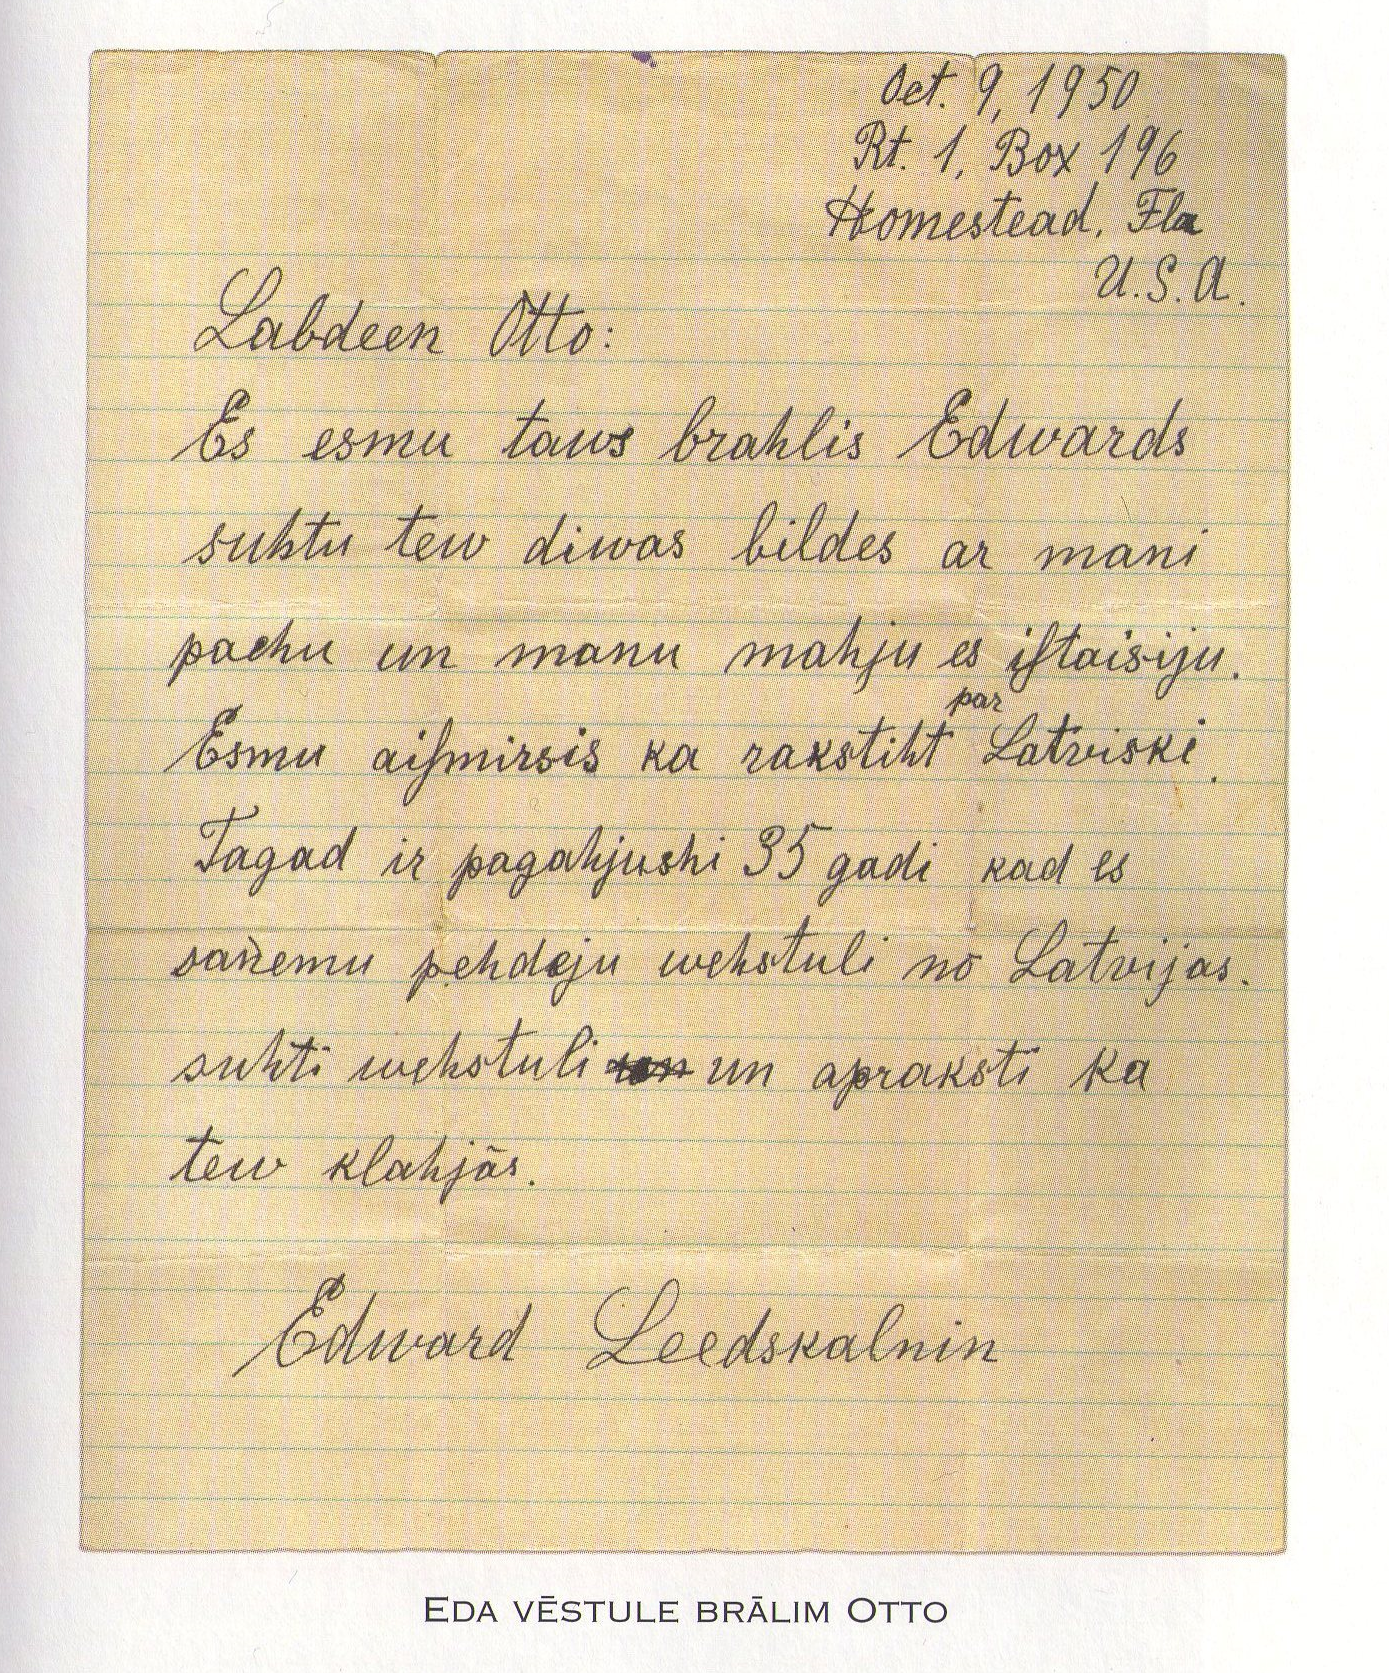 Oct. 9, 1950
Rt. 1, Box 196
Homestead, Fla
U.S.A.
Labdeen Otto:
Es esmu taws brahlis Edwards
suhtu tew diwas bildes ar mani
pachu un manu mahju es iſtaisiju.
par
Esmu aiſmirsis ka rakstiht Latviski.
Tagad ir pagahjushi 35 gadi kad es
sañemu pehdeju wehstuli no Latvijas.
suhti wehstuli un apraksti ka
tew klahjās.
Edward Leedskalnin
EDA VĒSTULE BRĀLIM OTTO